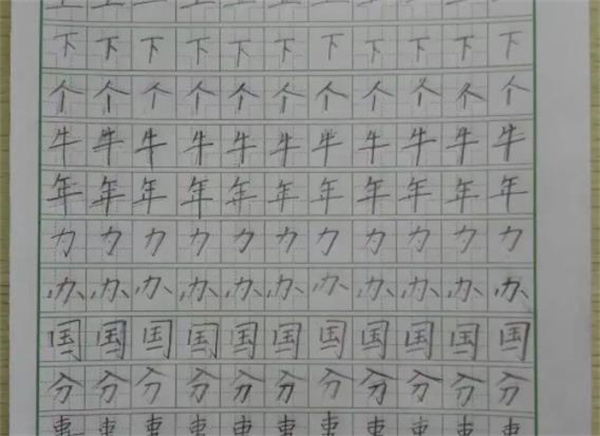 下下下下下下下下下下下
个个个个个个个个个个个
牛牛牛牛牛牛牛牛牛牛牛
年年年年年年年年年年年
力力力力力力力力力力力
办办办办办办办办办办办
国国国国国国国国国国国
分分分分分分分分分分分